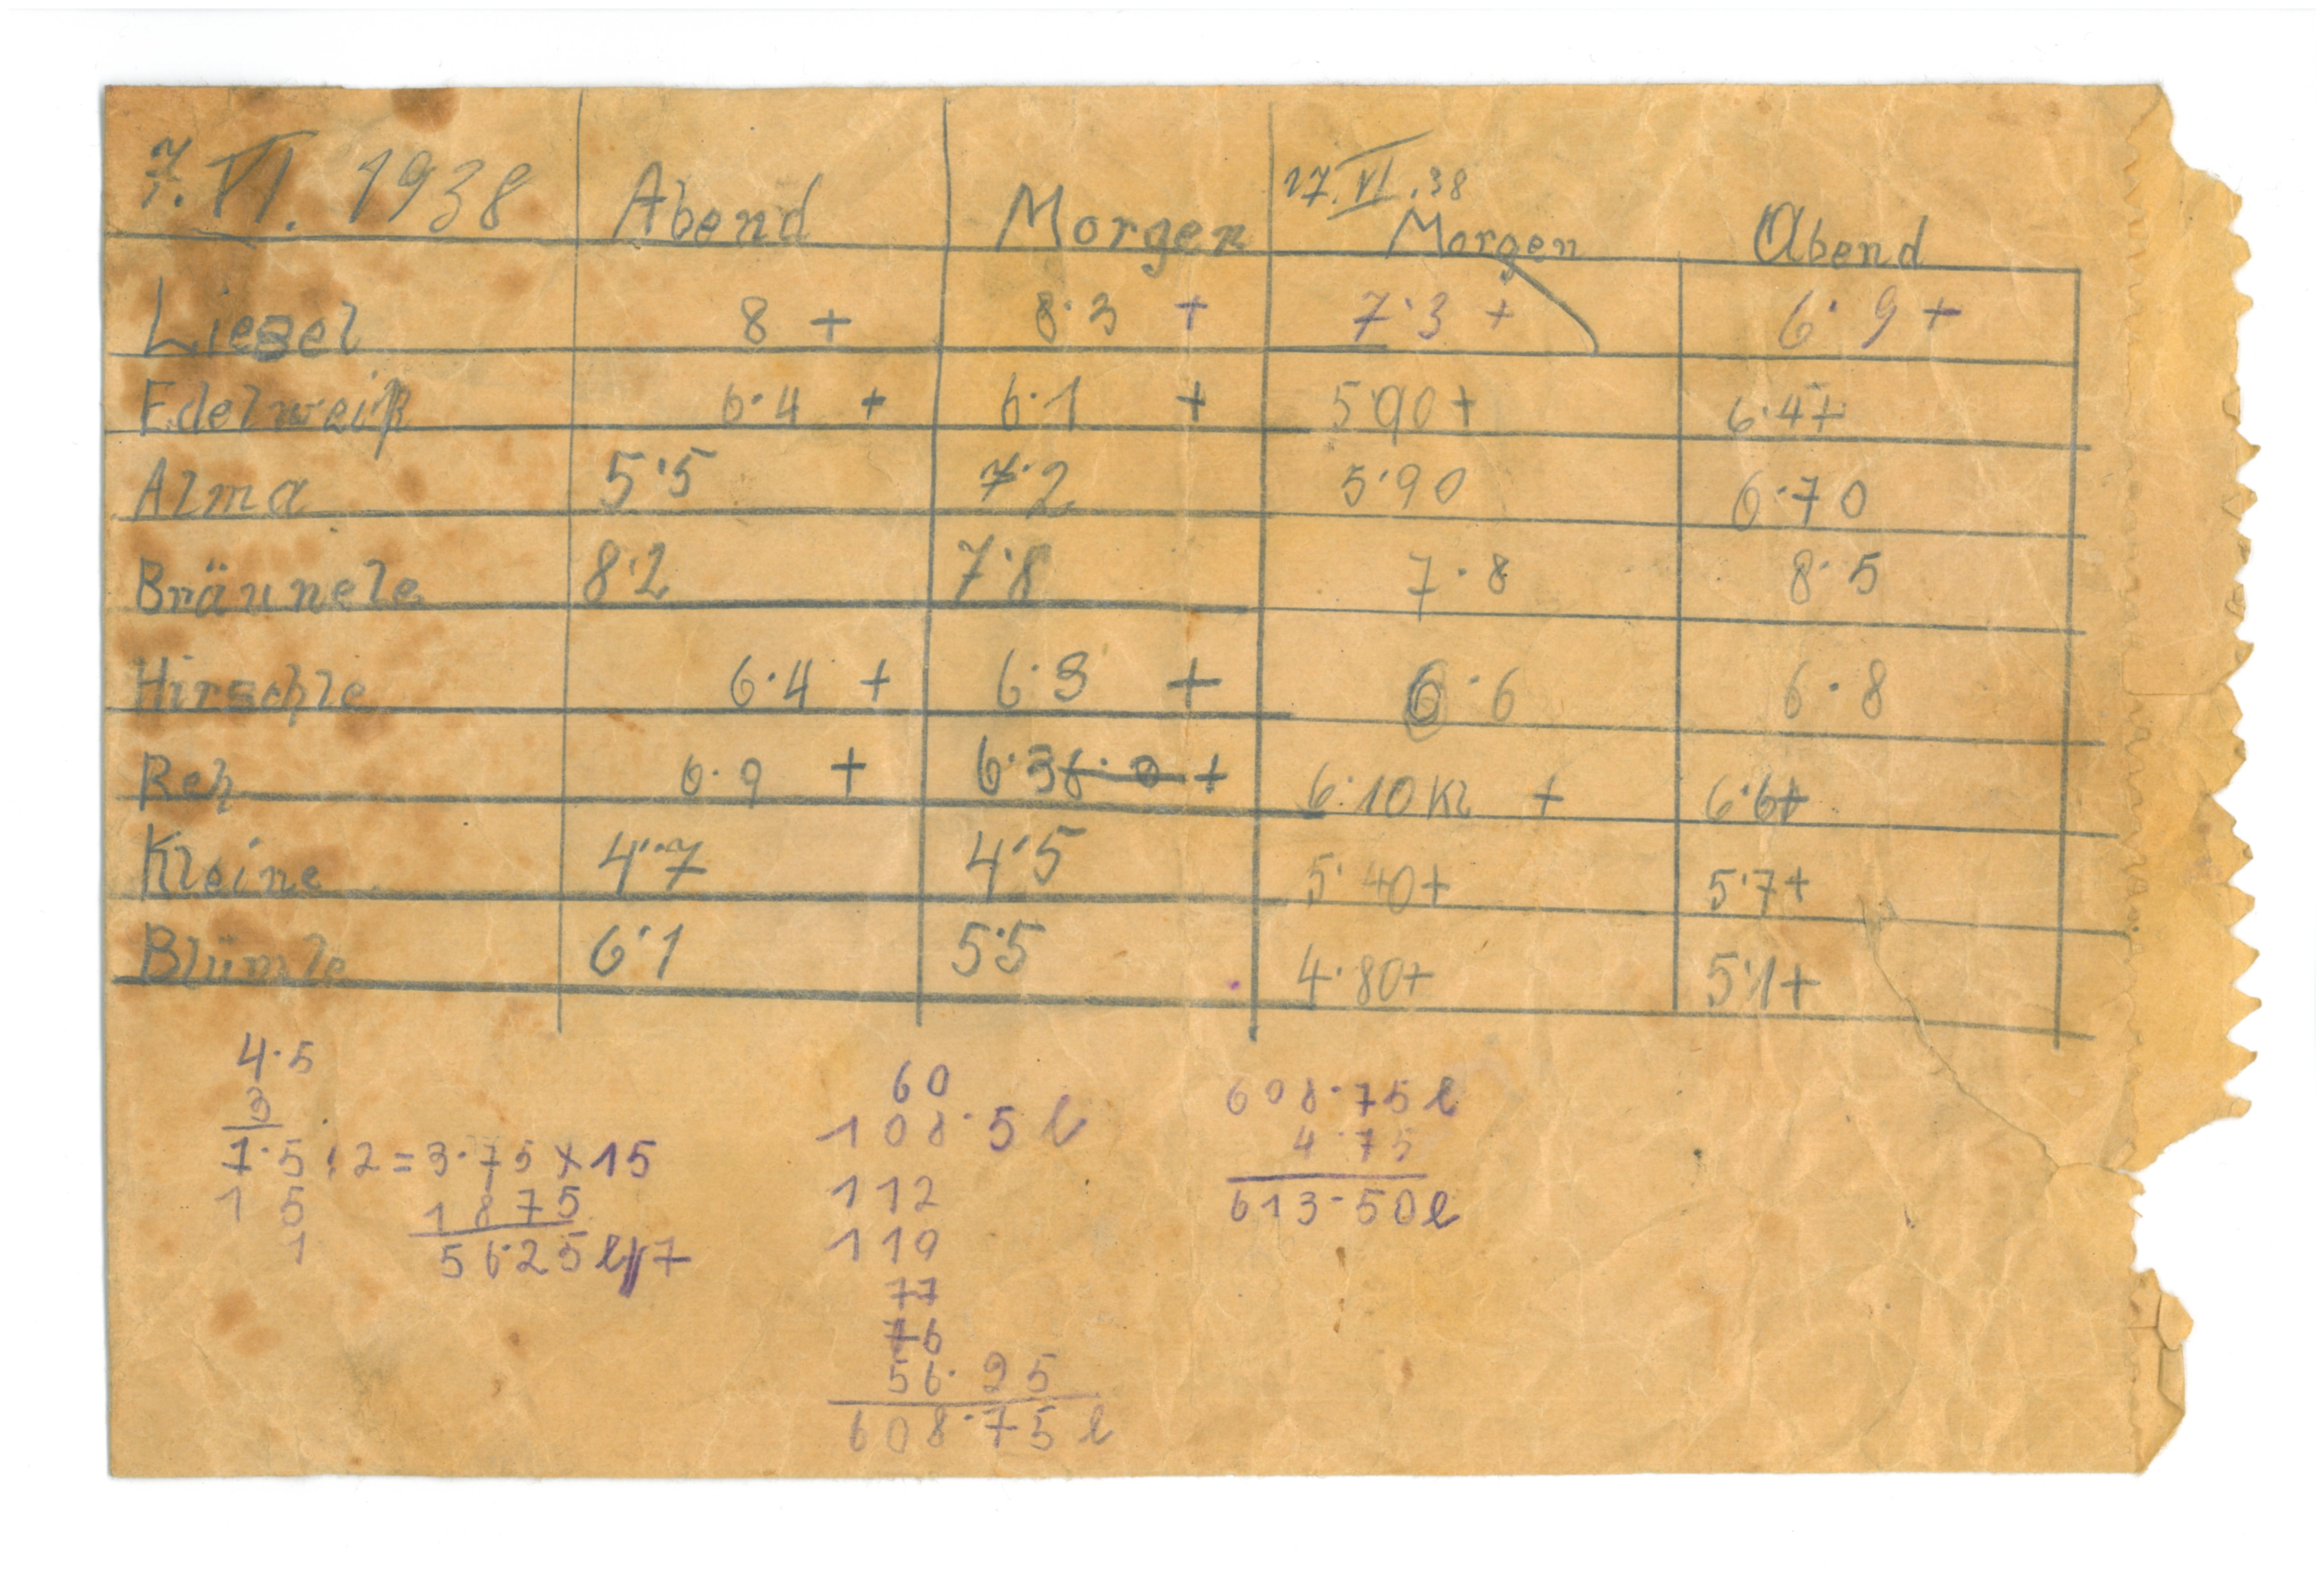 7. VI. 1938 Abend Morgen 17. VI. 38 Morgen Abend
Liesel 8 + 8·3 + 7·3 + 6·9 +
Edelweiß 6·4 + 6·1 + 5 90 + 6·4+
Alma 5·5 7·2 5·90 6·70
Bräunele 8·2 7·8 7·8 8·5
Hirschle 6·4 + 6·3 + 6·6 6·8
Reh 6·9 + 6·3 + 6·10 Kl + 6·6+
Kleine 4·7 4·5 5·40+ 5·7+
Blümle 6·1 5·5 4·80+ 5·1+
4·5
3
7·5 : 2 = 3·75 × 15
1 5
1
1875
5625 l
7
60
108·5 l
112
119
77
76
56·25
608·75 l
608·75 l
4·75
613·50 l